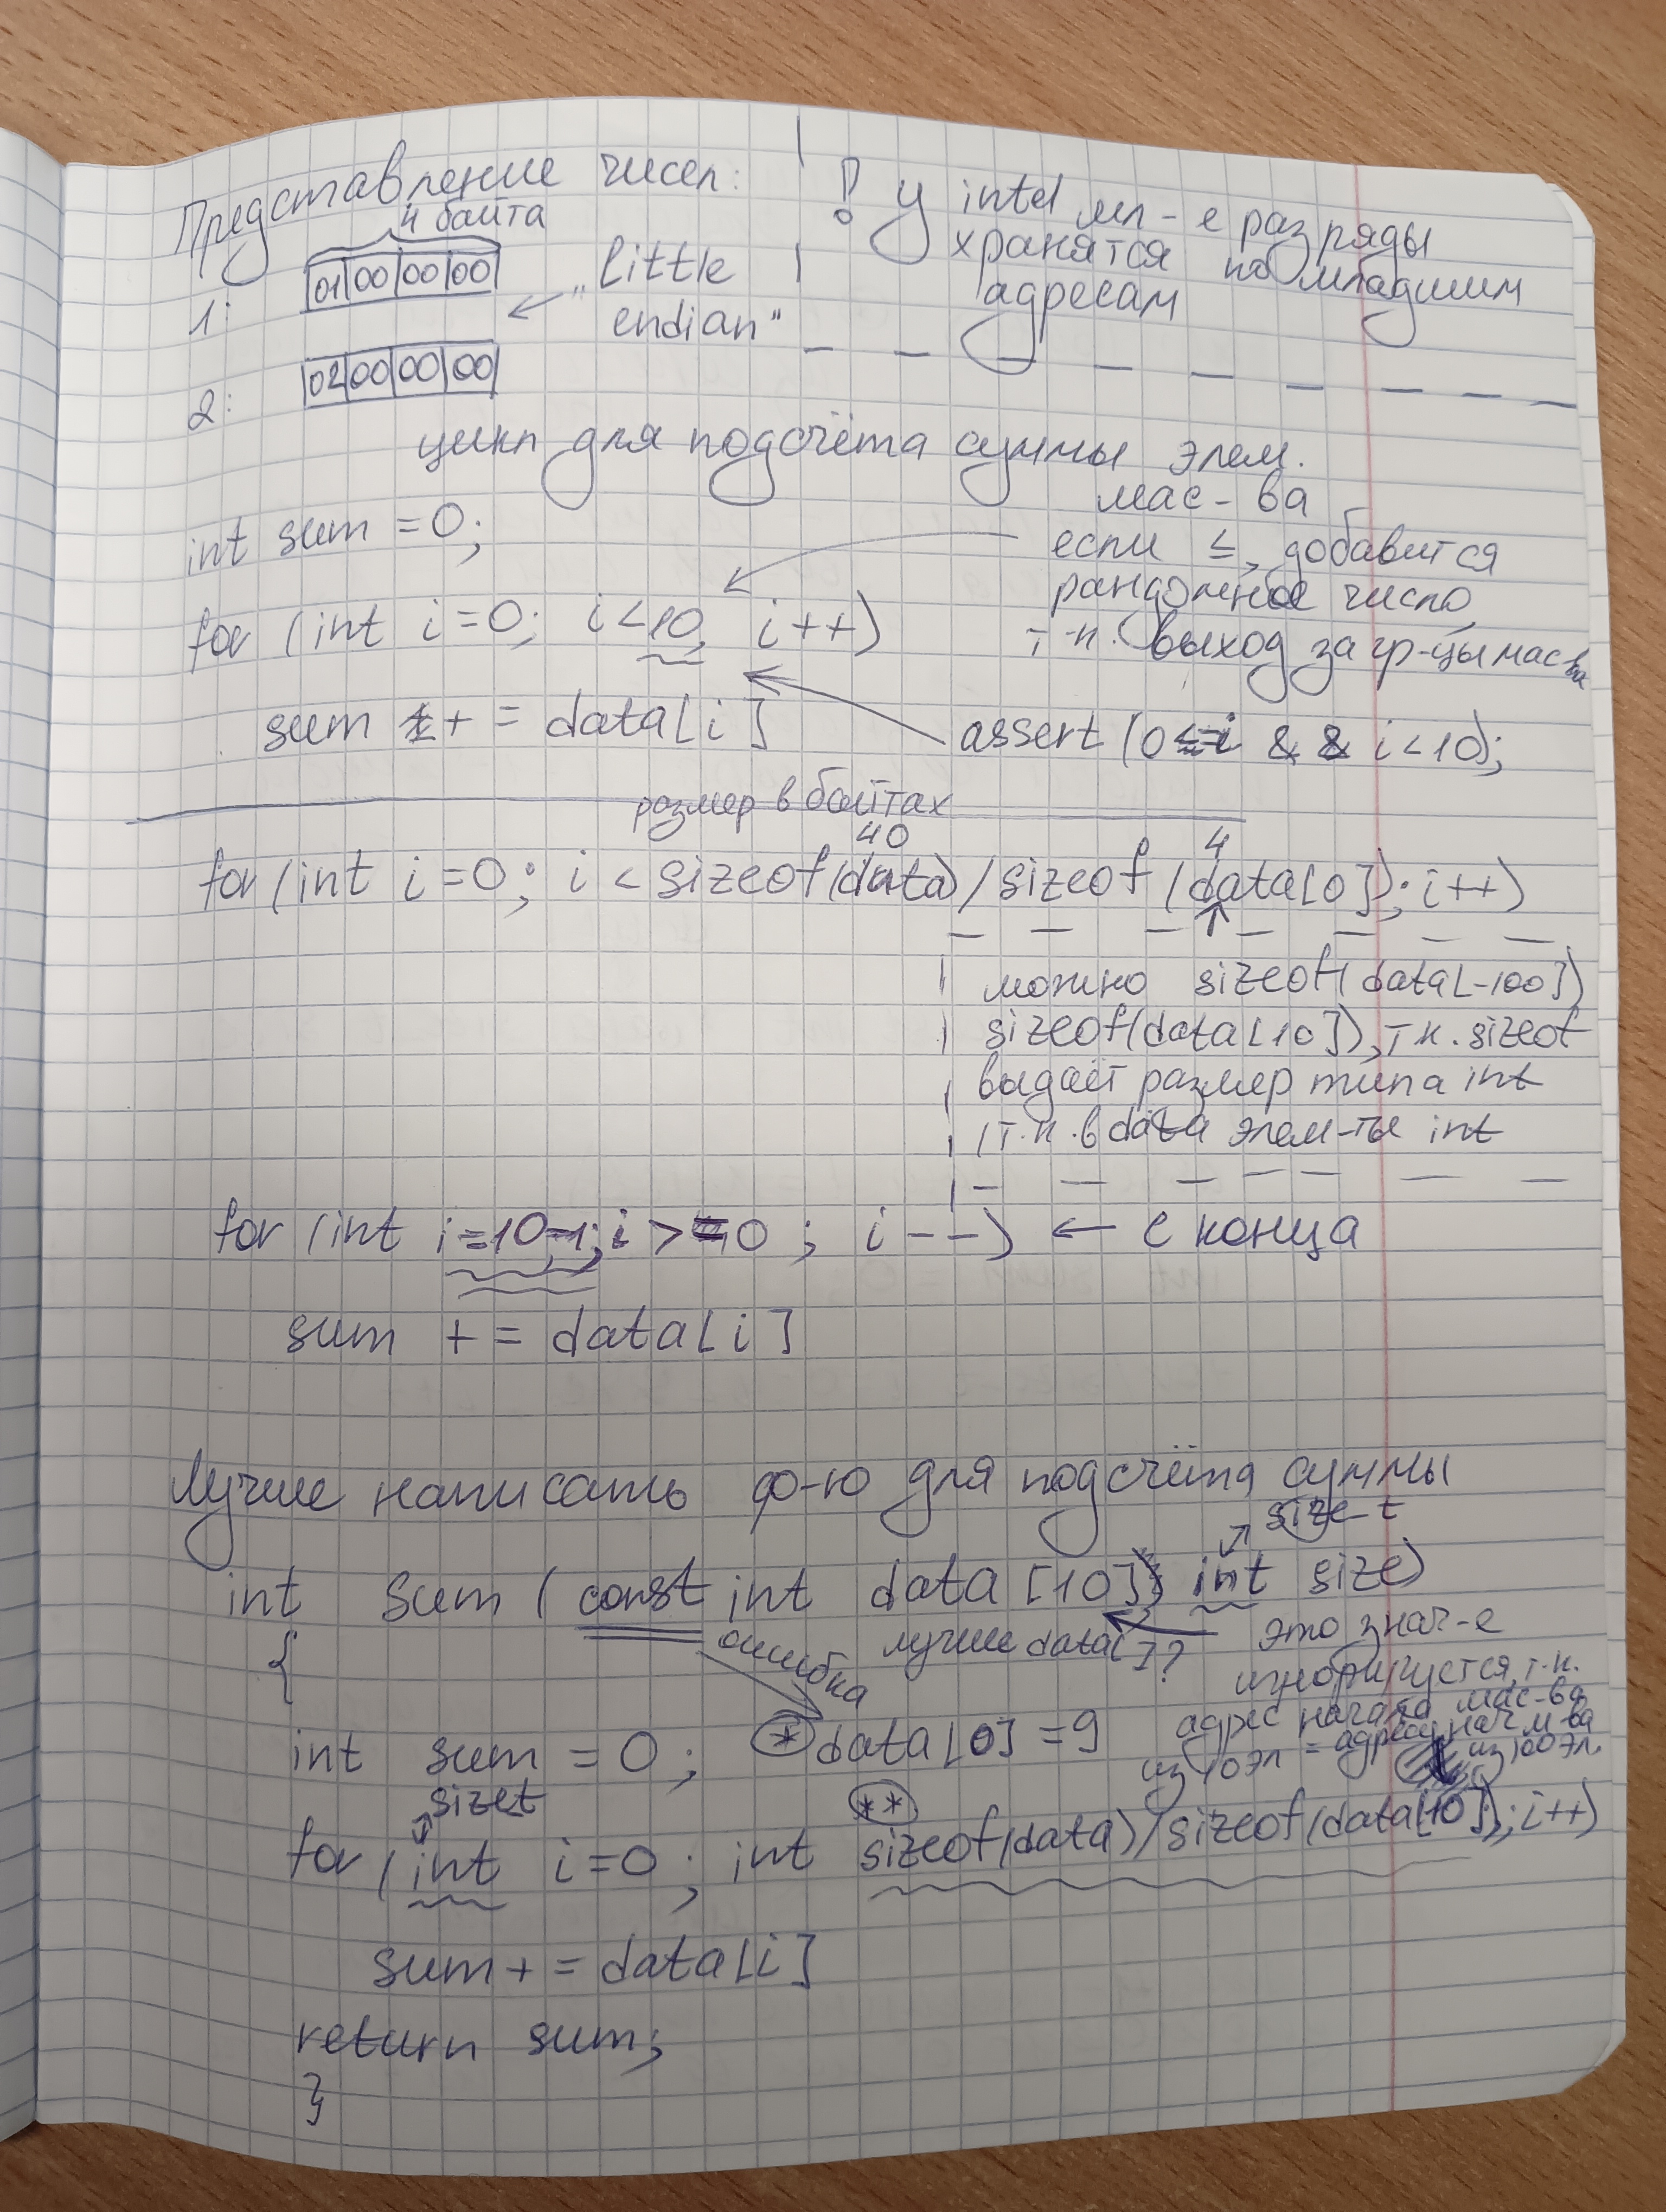 Представление чисел:
4 байта
1: 01 00 00 00
"little
endian"
2: 02 00 00 00
! У intel мл-е разряды
хранятся по младшим
адресам
цикл для подсчёта суммы элем.
мас-ва
int sum = 0;
если ≤, добавится
рандомное число,
т.к. выход за гр-цы мас-ва
for (int i=0; i<10, i++)
sum += data[i]
assert (0<=i && i<10);
размер в байтах
40
4
for (int i=0; i < sizeof(data)/sizeof(data[0]); i++)
можно sizeof(data[-100])
sizeof(data[10]), т.к. sizeof
выдаёт размер типа int
(т.к. в data элем-ты int
for (int i=10-1; i>=0; i--) ← с конца
sum += data[i]
Лучше написать ф-ю для подсчёта суммы
size_t
int Sum (const int data [10], int size)
{
ошибка
лучше data[]?
это знач-е
игнорируется, т.к.
адрес начала мас-ва
из 10 эл = адресу нач м-ва
из 100 эл.
int sum = 0;
* data[0] = 9
sizet
**
for (int i=0; int sizeof(data)/sizeof(data[10]); i++)
sum += data[i]
return sum;
}